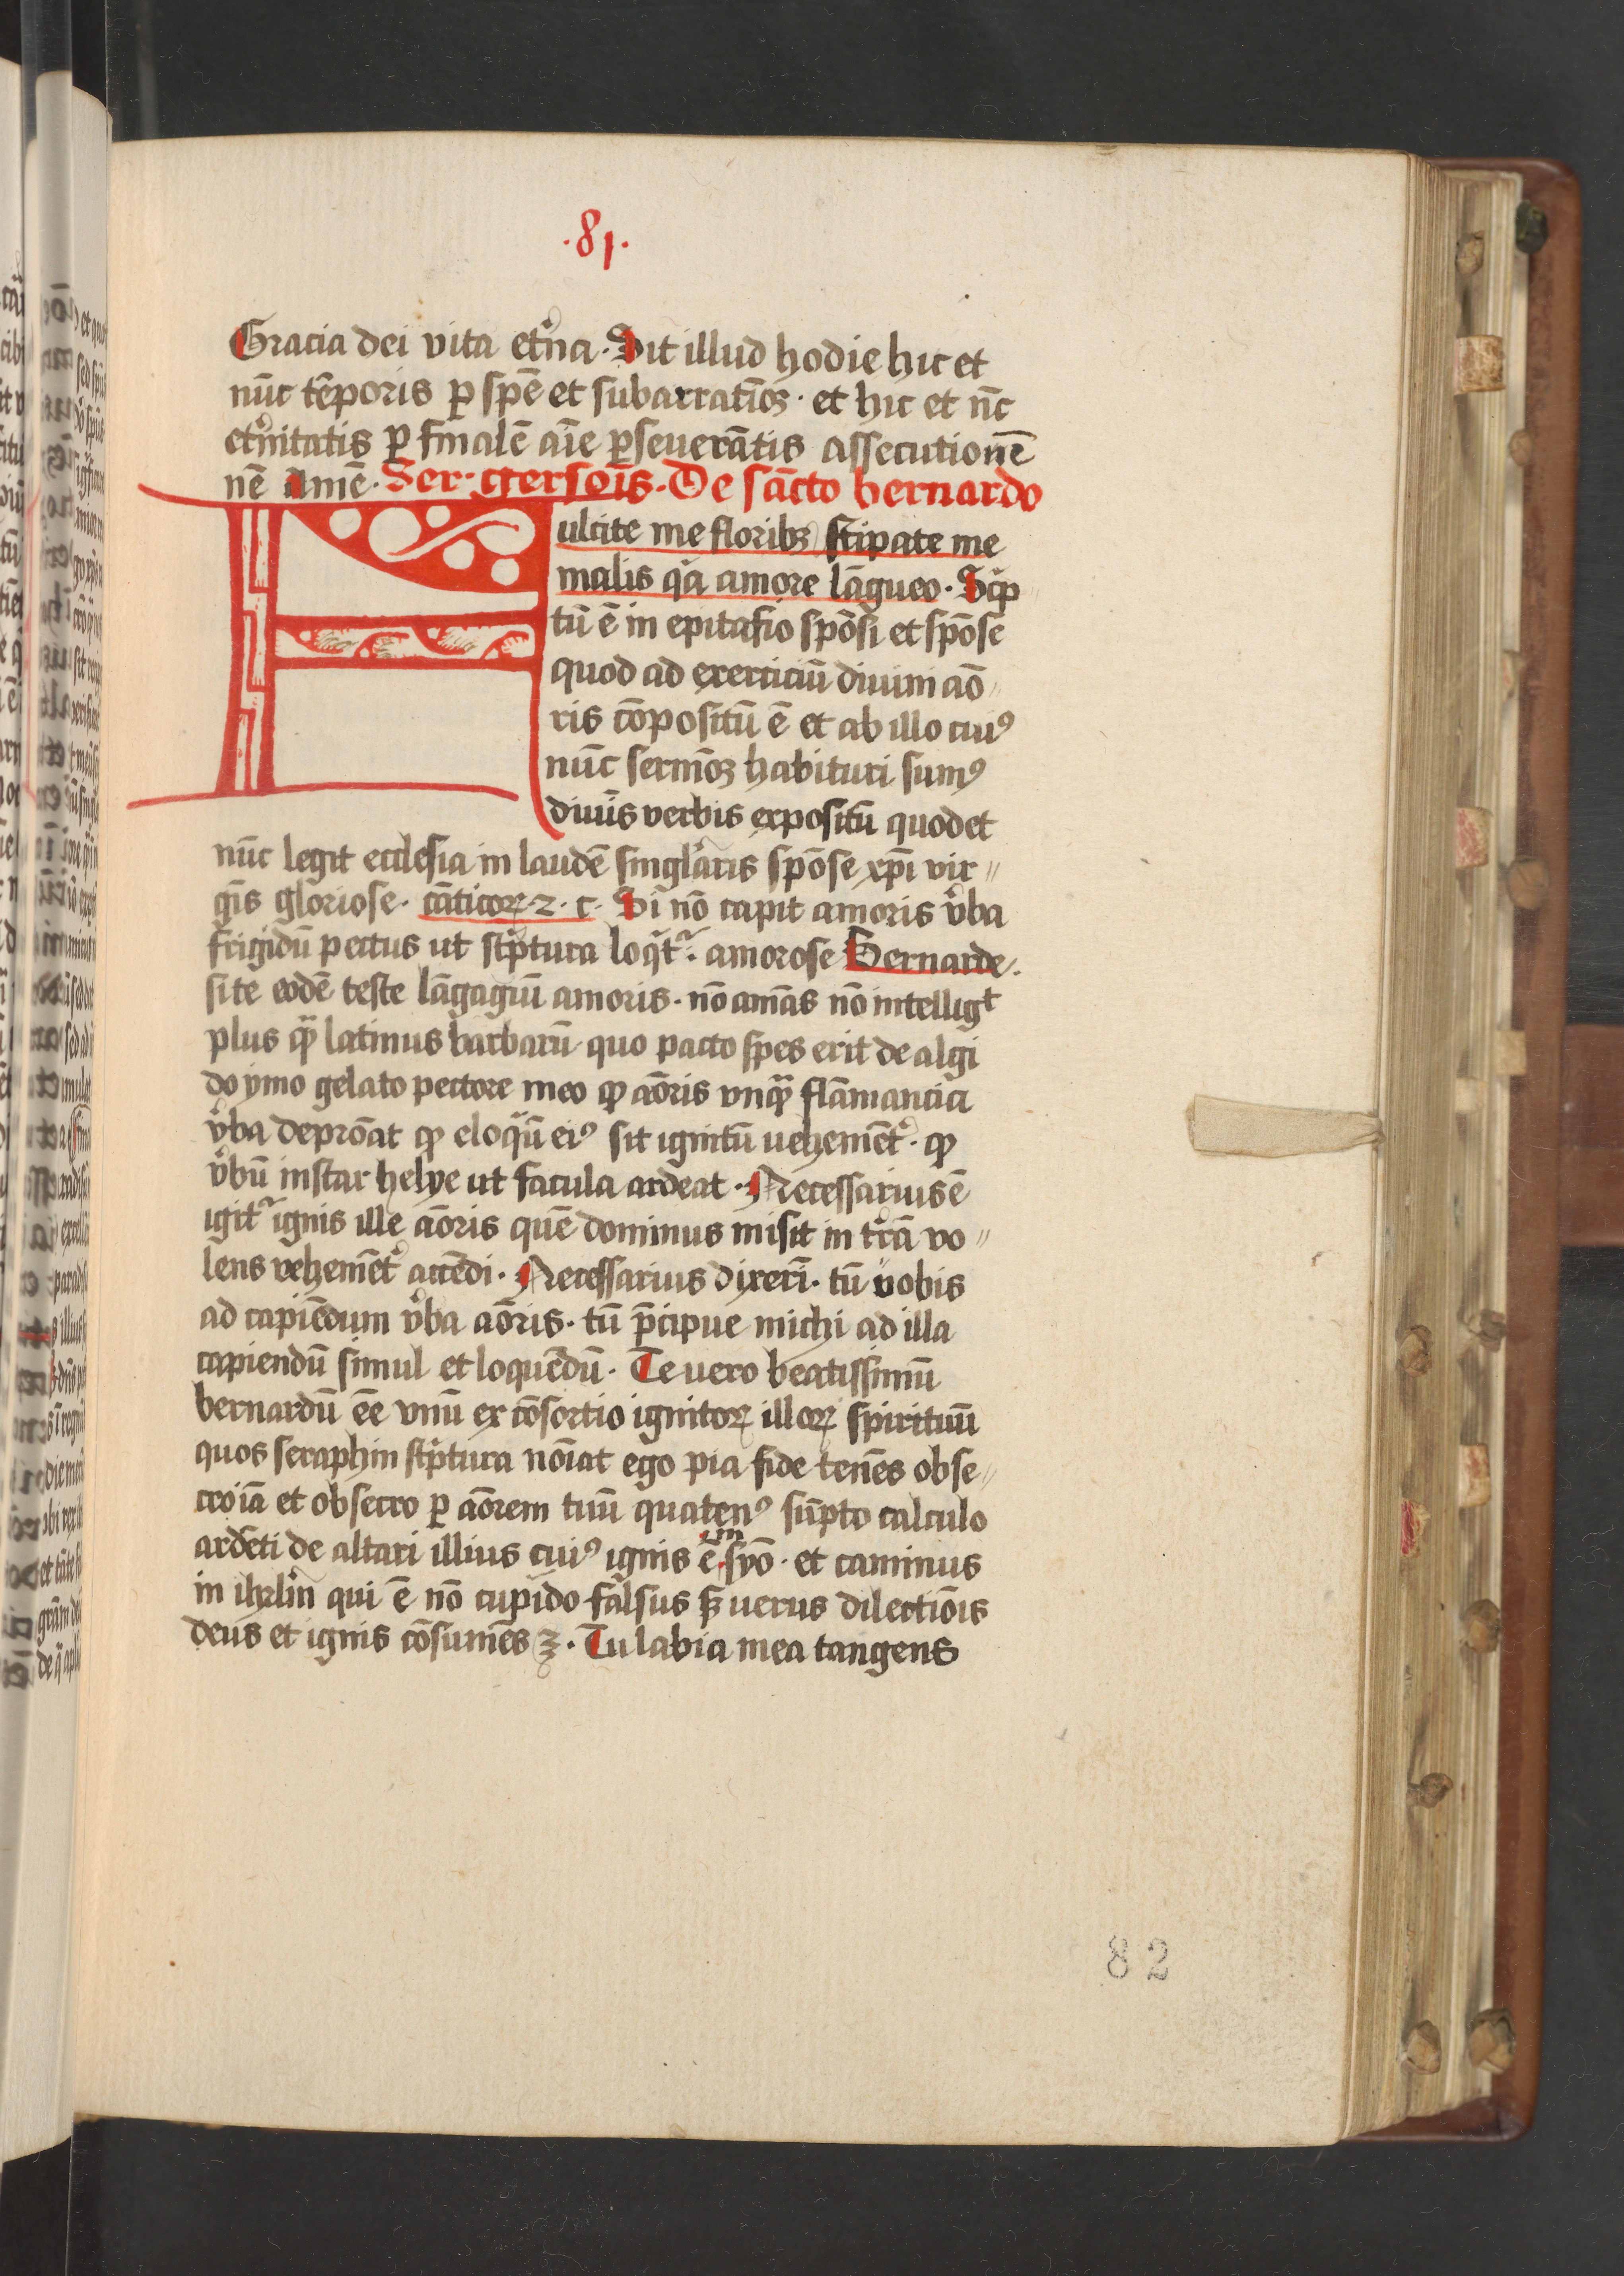 .81.
Gracia dei vita et̉na. Sit illud hodie hic et
nūc tēporis ꝑ spē et subarratiōꝫ. et hic et nc̄
et̉nitatis ꝑ finalē aīe ꝑseuerātis assecutionē
nē amē. Ser. gersōis. De sācto bernardo
Fulcite me floribꝫ stipate me
malis qa amore lāgueo. Scp̄
tū ē in epitafio spōsi et spōse
quod ad exerciciū diuini aō
ris cōpositū ē et ab illo cuiꝰ
nūc sermōꝫ habituri sumꝰ
diuīs verbis expositū quod et
nūc legit ecclesia in laudē singlaris spōse xp̄i vir
gīs gloriose. cāticoꝝ 2. c. Si nō capit amoris v̉ba
frigidū pectus ut scp̄tura loqt᷑. amorose Bernarde.
si te eodē teste lāgagiū amoris. nō amās nō intelligt
plus qꝫ latinus barbarū quo pacto spes erit de algi
do ymo gelato pectore meo ꝙ aōris vnqꝫ flāmantia
v̉ba depromat ꝙ eloqū eiꝰ sit ignitū uehemēt̉. ꝙ
v̉bū instar helye ut facula ardeat. Necessarius ē
igit᷑ ignis ille aōris quē dominus misit in trā vo
lens vehemēt̉ accēdi. Necessarius dixerī. tū uobis
ad capiēdum v̉ba aōris. tū p̄cipue michi ad illa
capiendū simul et loquēdū. Te uero beatissimū
bernardū eē vnū ex cōsortio ignitoꝝ illoꝝ spirituū
quos seraphin scp̄tura nōiat ego pia fide tenēs obse
cro iā et obsecro ꝑ aōrem tuū quatenꝰ sūpto calculo
ardēti de altari illius cuiꝰ ignis ē in syō. et caminus
in ihrlm̄ qui ē nō cupido falsus sꝫ uerus dilectiōis
deus et ignis cōsumēs ꝛc. Tu labia mea tangens
82